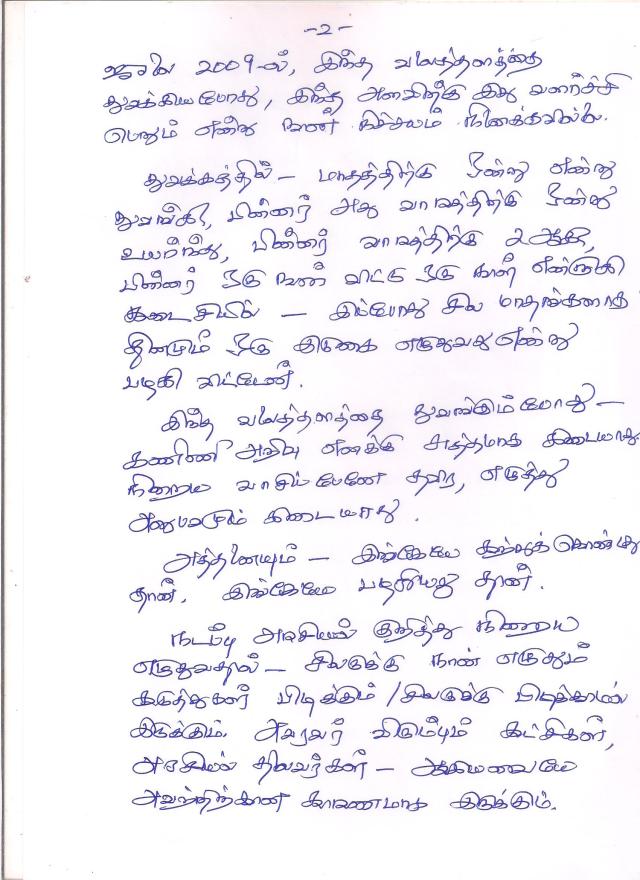 -2-
ஜூலை 2009-ல், இந்த வலைத்தளத்தை
துவக்கியபோது, இந்த அளவிற்கு இது வளர்ச்சி
பெறும் என்று நான் நிச்சயம் நினைக்கவில்லை.
துவக்கத்தில் – மாதத்திற்கு ஒன்று என்று
துவங்கி, பின்னர் அது வாரத்திற்கு ஒன்று
உயர்ந்து, பின்னர் வாரத்திற்கு 2ஆகி,
பின்னர் ஒரு நாள் விட்டு ஒரு நாள் என்றாகி
கடைசியில் – இப்போது சில மாதங்களாக
தினமும் ஒரு இடுகை எழுதுவது என்று
பழகி விட்டேன்.
இந்த வலைத்தளத்தை துவங்கும்போது –
கணினி அறிவு எனக்கு அத்தமாக கிடையாது
நிறைய வாசிப்பேனே தவிர, எழுத்து
அனுபவமும் கிடையாது.
அத்தனையும் – இங்கேயே கற்றுக்கொண்டது
தான். இங்கேயே பழகியது தான்.
நடப்பு அரசியல் குறித்து நிறைய
எழுதுவதால் – சிலருக்கு நான் எழுதும்
கருத்துகள் பிடிக்கும் / சிலருக்கு பிடிக்காமல்
இருக்கும். அவரவர் விரும்பும் கட்சிகள்,
அரசியல் தலைவர்கள் – ஆகியவையே
அவற்றிற்கான காரணமாக இருக்கும்.